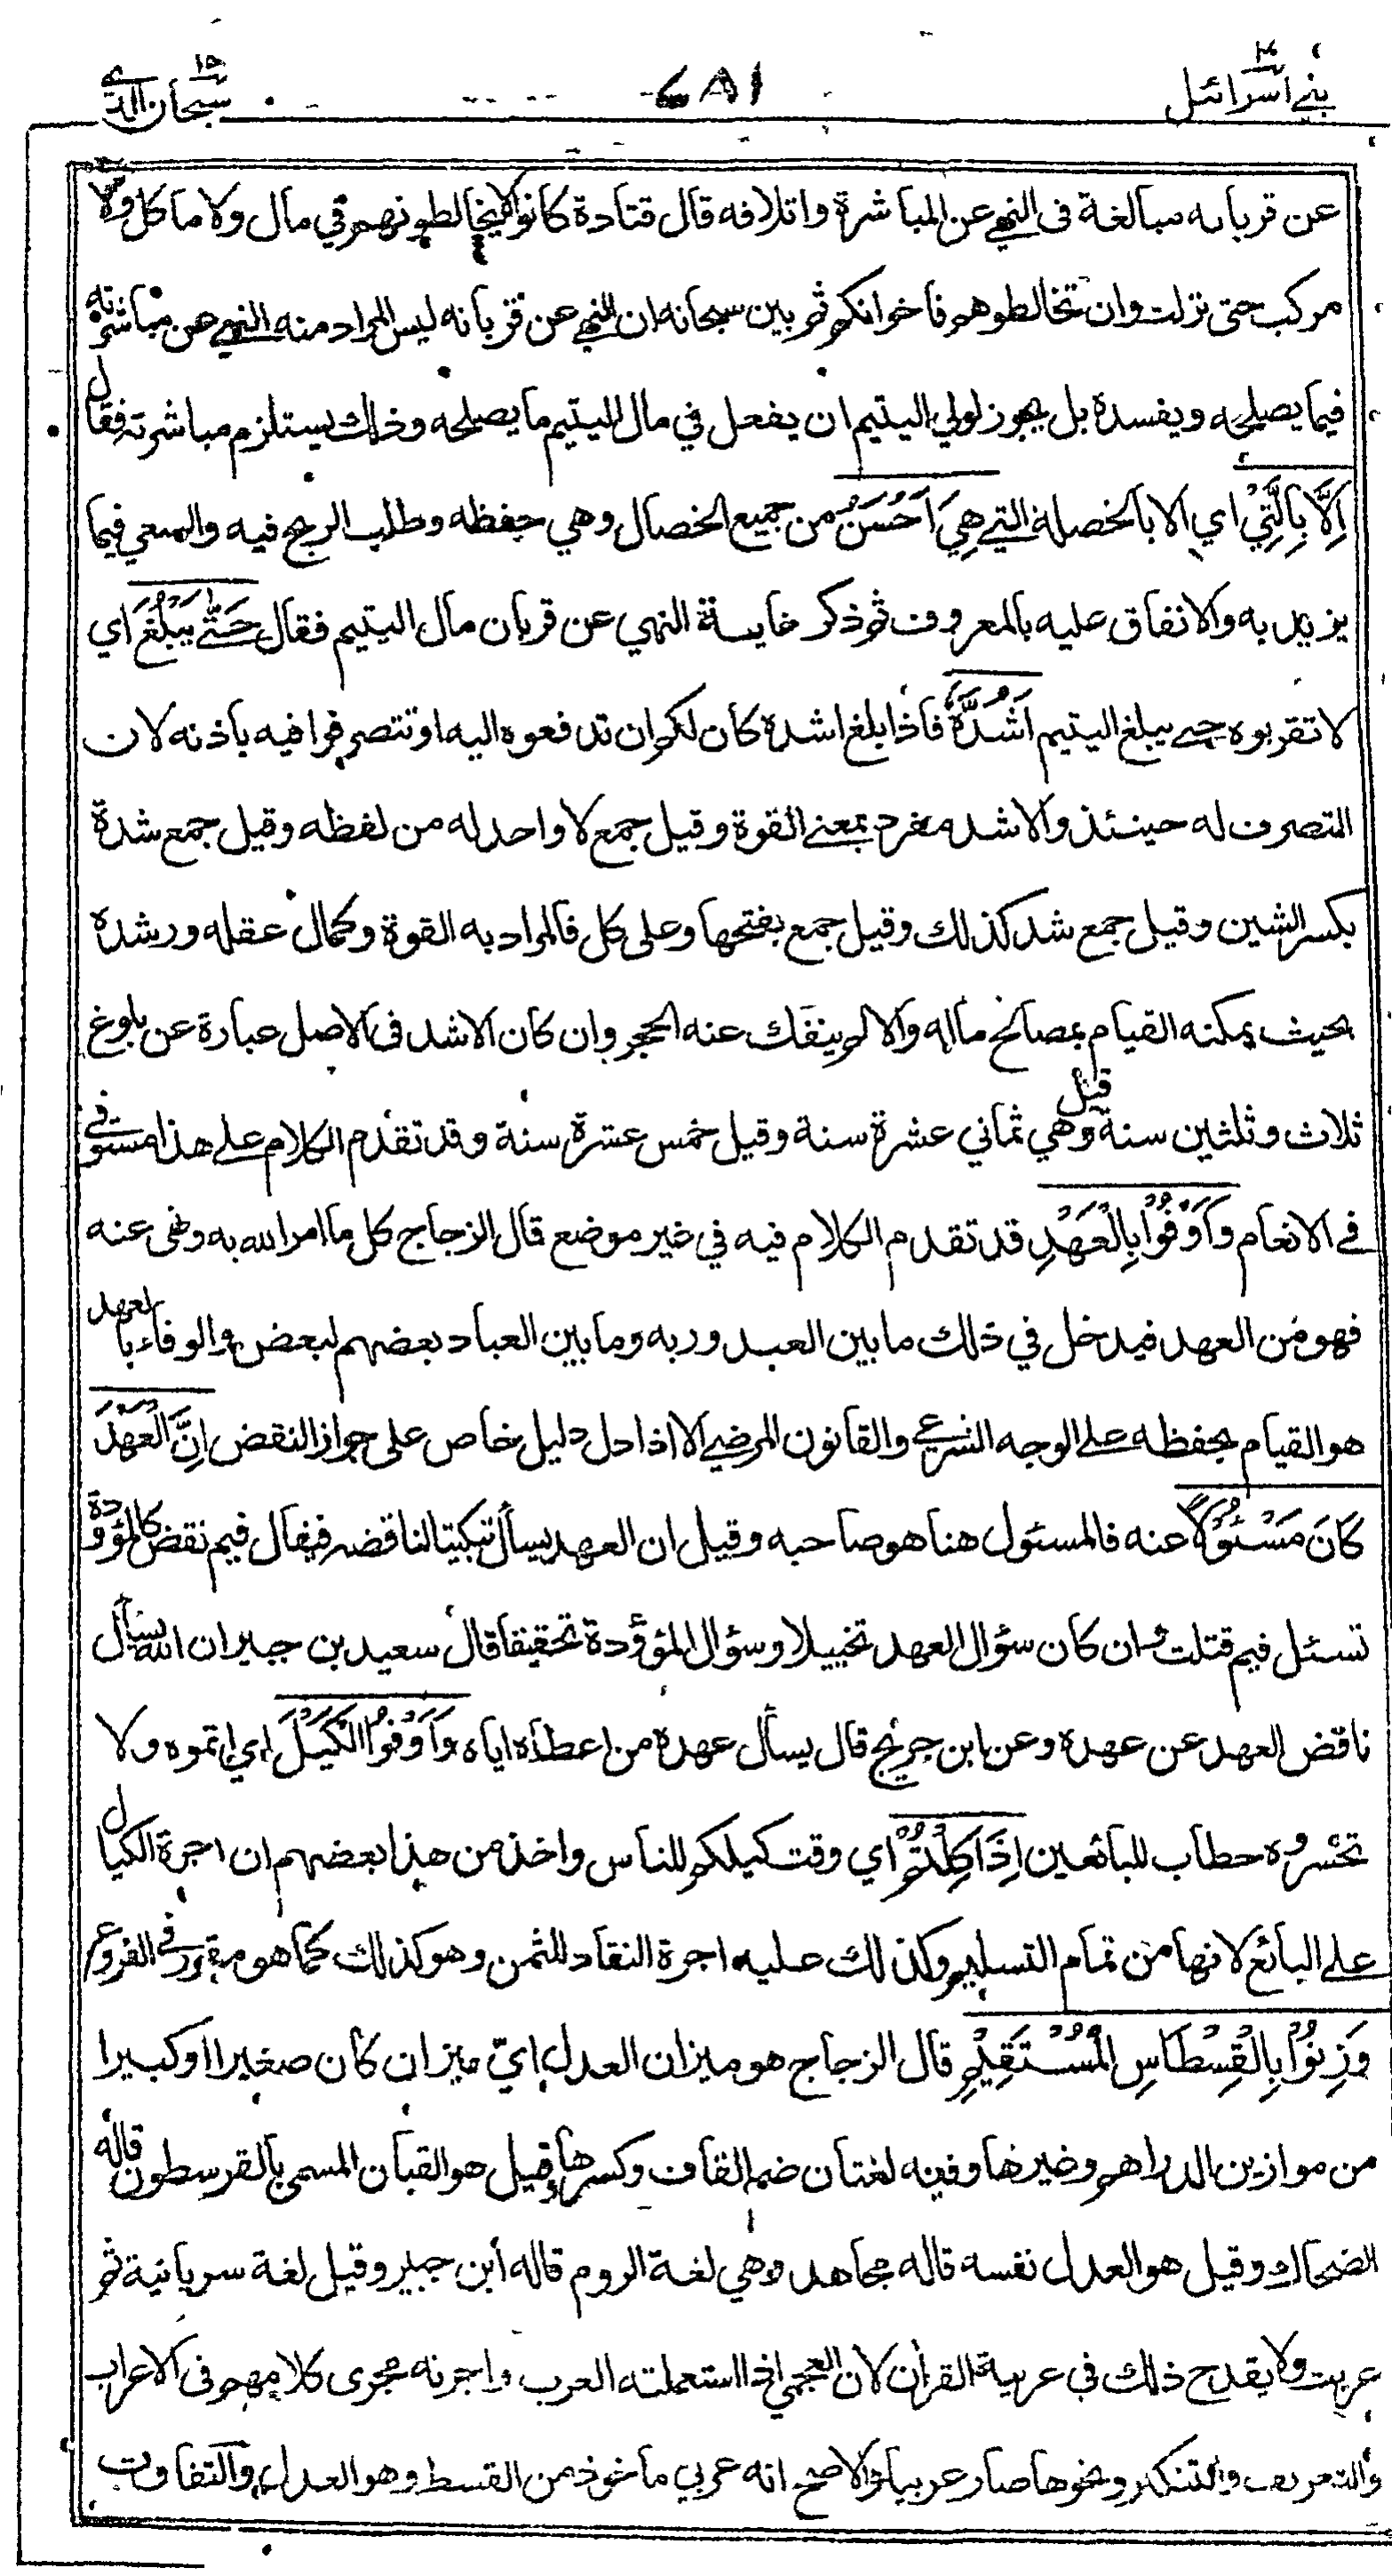 بني اسرائيل ١٧
٧٨١
سبحان الذي ١٥
عن قربانه مبالغة فى النهي عن المباشرة واتلافه قال قتادة كانوا لا يخالطونهم في مال ولا ماكل ولا
مركب حتى نزلت وان تخالطوهم فاخوانكم ثم بين سبحانه ان النهي عن قربانه ليس المراد منه النهي عن مباشرته
فيما يصلحه ويفسده بل يجوز لولي اليتيم ان يفعل في مال اليتيم ما يصلحه وذلك يستلزم مباشرته فقال
اِلَّا بِالَّتِيْ اي الا بالخصلة التي هِيَ اَحْسَنُ من جميع الخصال وهي حفظه وطلب الربح فيه والسعي فيما
يزيد به والانفاق عليه بالمعروف ثم ذكر غاية النهي عن قربان مال اليتيم فقال حَتّٰى يَبْلُغَ اي
لا تقربوه حتى يبلغ اليتيم اَشُدَّهٗ فاذا بلغ اشده كان لكم ان تدفعوه اليه او تتصرفوا فيه باذنه لان
التصرف له حينئذ والاشد مفرد بمعنى القوة وقيل جمع لا واحد له من لفظه وقيل جمع شدة
بكسر الشين وقيل جمع شد كذلك وقيل جمع بفتحها وعلى كل فالمراد به القوة وكمال عقله ورشده
بحيث يمكنه القيام بمصالح ماله والا لم ينفك عنه الحجر وان كان الاشد فى الاصل عبارة عن بلوغ
ثلاث وثلثين سنة وقيل هي ثماني عشرة سنة وقيل خمس عشرة سنة وقد تقدم الكلام على هذا مستوفى
في الانعام وَاَوْفُوْا بِالْعَهْدِ قد تقدم الكلام فيه في غير موضع قال الزجاج كل ما امر الله به ونهى عنه
فهو من العهد فيدخل في ذلك ما بين العبد وربه وما بين العباد بعضهم لبعض والوفاء بالعهد
هو القيام بحفظه على الوجه الشرعي والقانون المرضي الا اذا دل دليل خاص على جواز النقض اِنَّ الْعَهْدَ
كَانَ مَسْئُوْلًا عنه فالمسئول هنا هو صاحبه وقيل ان العهد يسأل تبكيتا لناقضه فيقال فيم نقض كالموؤدة
تسئل فيم قتلت وان كان سؤال العهد تخييلا وسؤال المؤودة تحقيقا قال سعيد بن جبير ان الله يسأل
ناقض العهد عن عهده وعن ابن جريج قال يسأل عهده من اعطاه اياه وَاَوْفُوا الْكَيْلَ اي اتموه ولا
تخسروه خطاب للبائعين اِذَا كِلْتُمْ اي وقت كيلكم للناس واخذ من هذا بعضهم ان اجرة الكيال
على البائع لانها من تمام التسليم وكذلك عليه اجرة النقاد للثمن وهو كذلك كما هو مقرر في الفروع
وَزِنُوْا بِالْقِسْطَاسِ الْمُسْتَقِيْمِ قال الزجاج هو ميزان العدل اي ميزان كان صغيرا او كبيرا
من موازين الدراهم وغيرها وفيه لغتان ضم القاف وكسرها وقيل هو القبان المسمى بالقرسطون قاله
الضحاك وقيل هو العدل نفسه قاله مجاهد وهي لغة الروم قاله ابن جبير وقيل لغة سريانية ثم
عربت ولا يقدح ذلك في عربية القرأن لان العجمي اذا استعملته العرب واجرته مجرى كلامهم فى الاعراب
والتعريف والتنكير ونحوها صار عربيا والاصح انه عربي ماخوذ من القسط وهو العدل والتفاوت